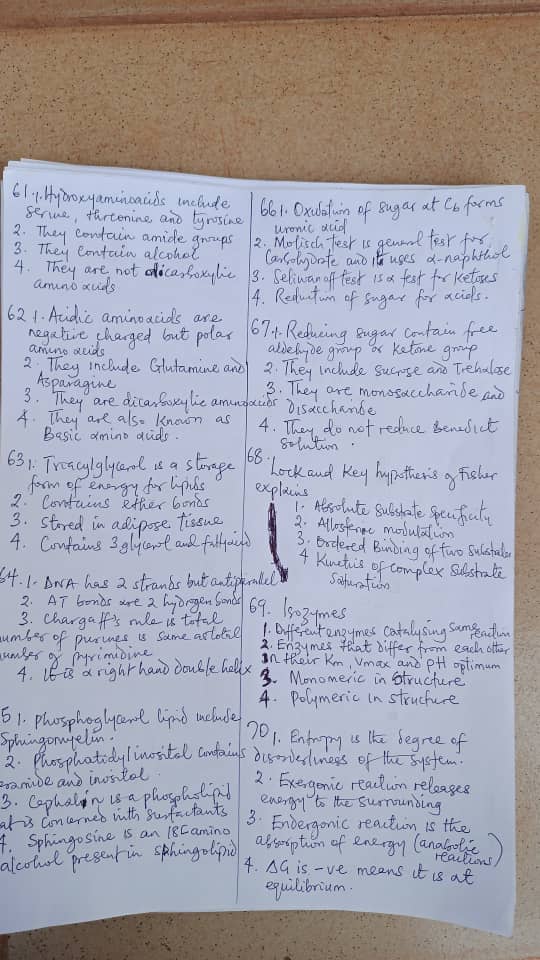 61 1. Hydroxyaminoacids include
serine, threonine and tyrosine
2. They contain amide groups
3. They contain alcohol
4. They are not dicarboxylic
amino acids
62 1. Acidic aminoacids are
negative charged but polar
amino acids
2. They include Glutamine and
Asparagine
3. They are dicarboxylic aminoacids
4. They are also known as
Basic amino acids.
63 1. Triacylglycerol is a storage
form of energy for lipids
2. Contains ether bonds
3. Stored in adipose tissue
4. Contains 3 glycerol and fattyacid
64. 1. DNA has 2 strands but antiparallel
2. AT bonds are 2 hydrogen bonds
3. Chargaff's rule is total
number of purines is same as total
number of pyrimidine
4. It is a right hand double helix
5 1. phosphoglycerol lipid include
Sphingomyelin.
2. Phosphatidylinositol contains
eramide and inositol.
3. Cephalin is a phospholipid
at is concerned with surfactants
4. Sphingosine is an 18C amino
alcohol present in sphingolipid
66 1. Oxidation of sugar at C6 forms
uronic acid
2. Molisch test is general test for
Carbohydrate and it uses α-naphthol
3. Seliwanoff test is a test for Ketoses
4. Reduction of sugar for acids.
67. 1. Reducing sugar contain free
aldehyde group or Ketone group
2. They include Sucrose and Trehalose
3. They are monosaccharide and
Disaccharide
4. They do not reduce Benedict
Solution.
68.
Lock and Key hypothesis of Fisher
explains
1. Absolute Substrate Specificity
2. Allosteric modulation
3. Ordered Binding of two Substrates
4 Kinetics of complex Substrate
Saturation
69. Isozymes
1. Different enzymes catalysing Same reaction
2. Enzymes that differ from each other
in their Km, Vmax and pH optimum
3. Monomeric in Structure
4. Polymeric in structure
70 1. Entropy is the degree of
disorderliness of the System.
2. Exergonic reaction releases
energy to the surrounding
3. Endergonic reaction is the
absorption of energy (anabolic
reactions)
4. ΔG is -ve means it is at
equilibrium.